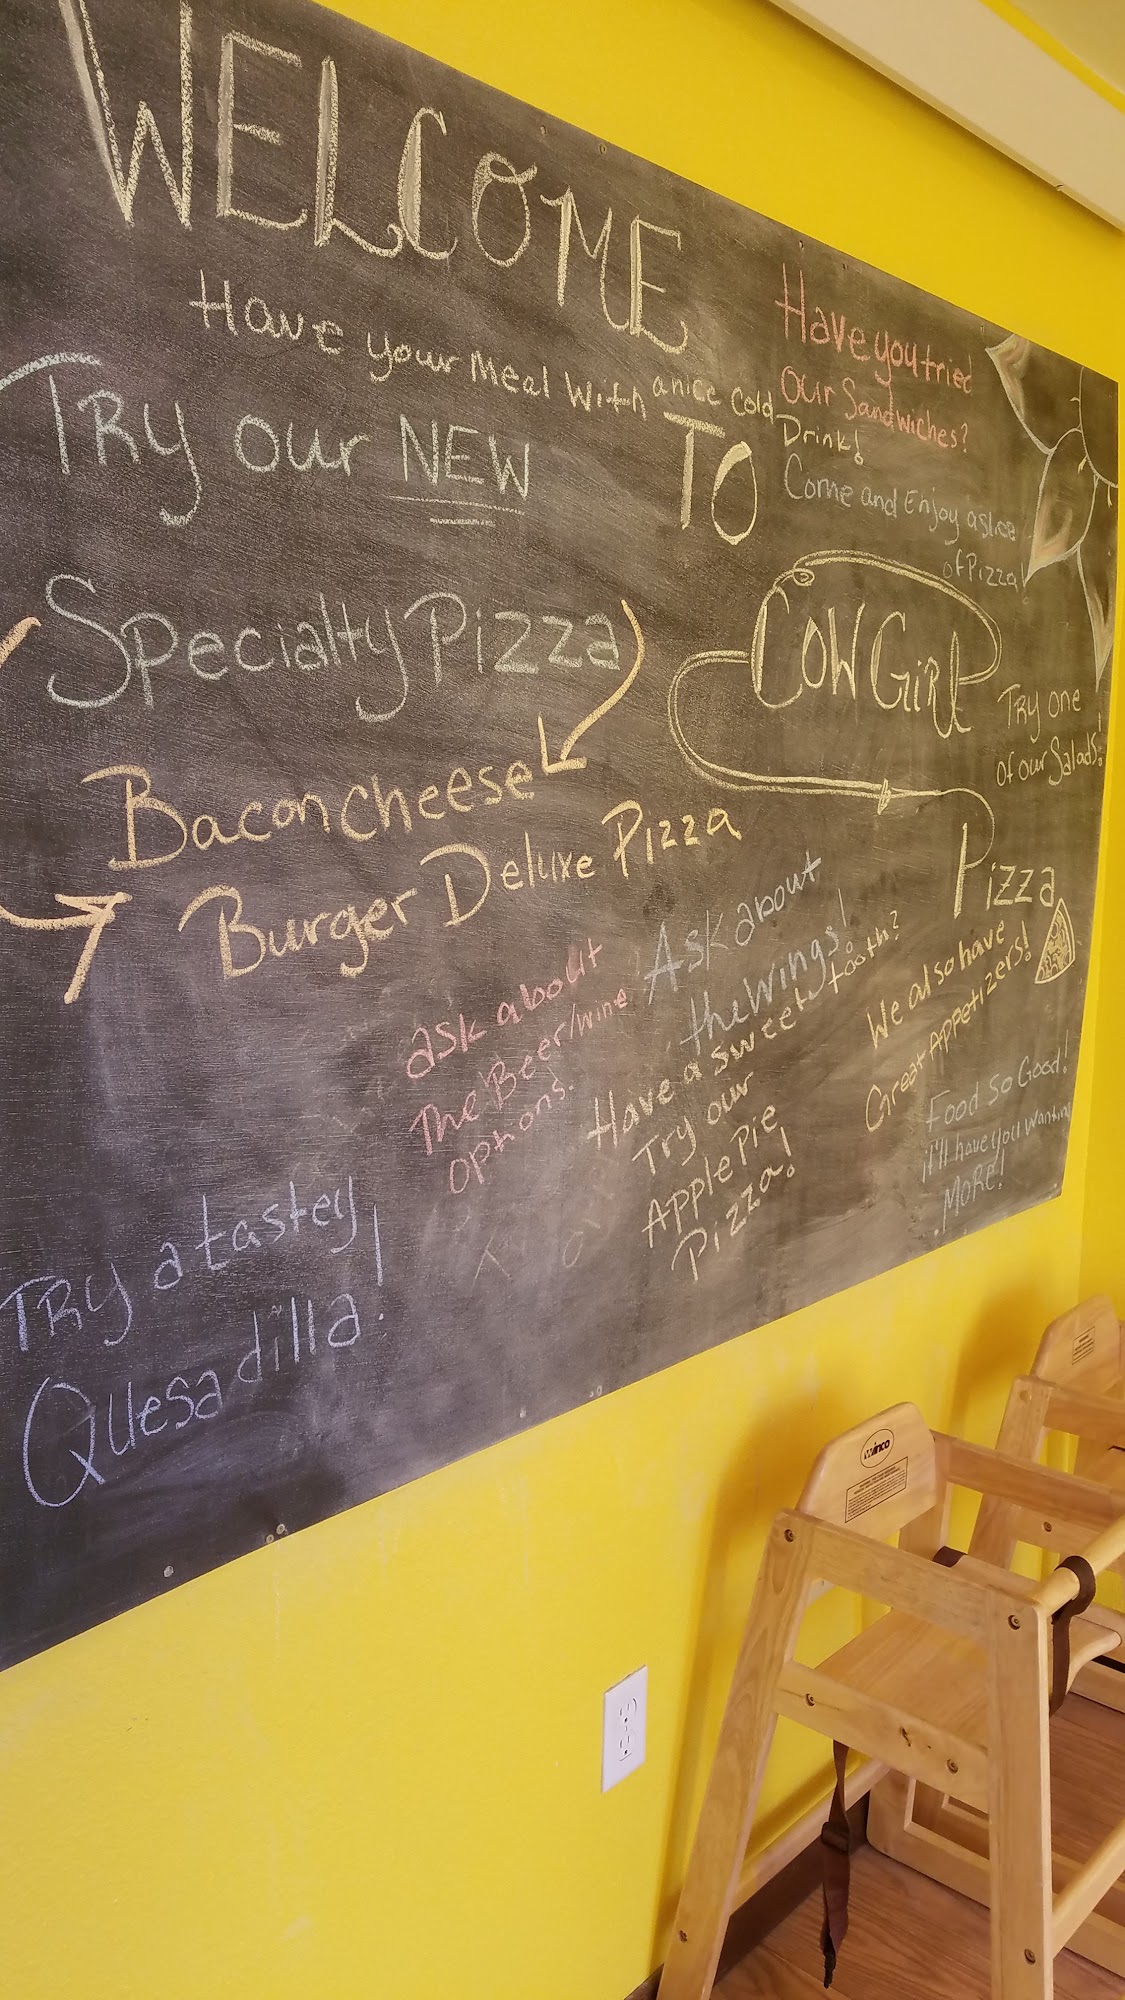 WELCOME
Have your Meal With a nice cold
Drink!
TO
COWGiRL
Pizza
TRy our NEW
Specialty Pizza
Bacon cheese
Burger Deluxe Pizza
Have you tried
our Sandwiches?
Come and Enjoy a slice
of Pizza!
TRy one
of our Salads!
ask about
The Beer/wine
options.
Ask about
the Wings!
Have a sweet tooth?
Try our
Apple Pie
Pizza!
We also have
Great Appetizers!
Food So Good!
it'll have you wanting
MORE!
TRy a tastey
Quesadilla!
winco